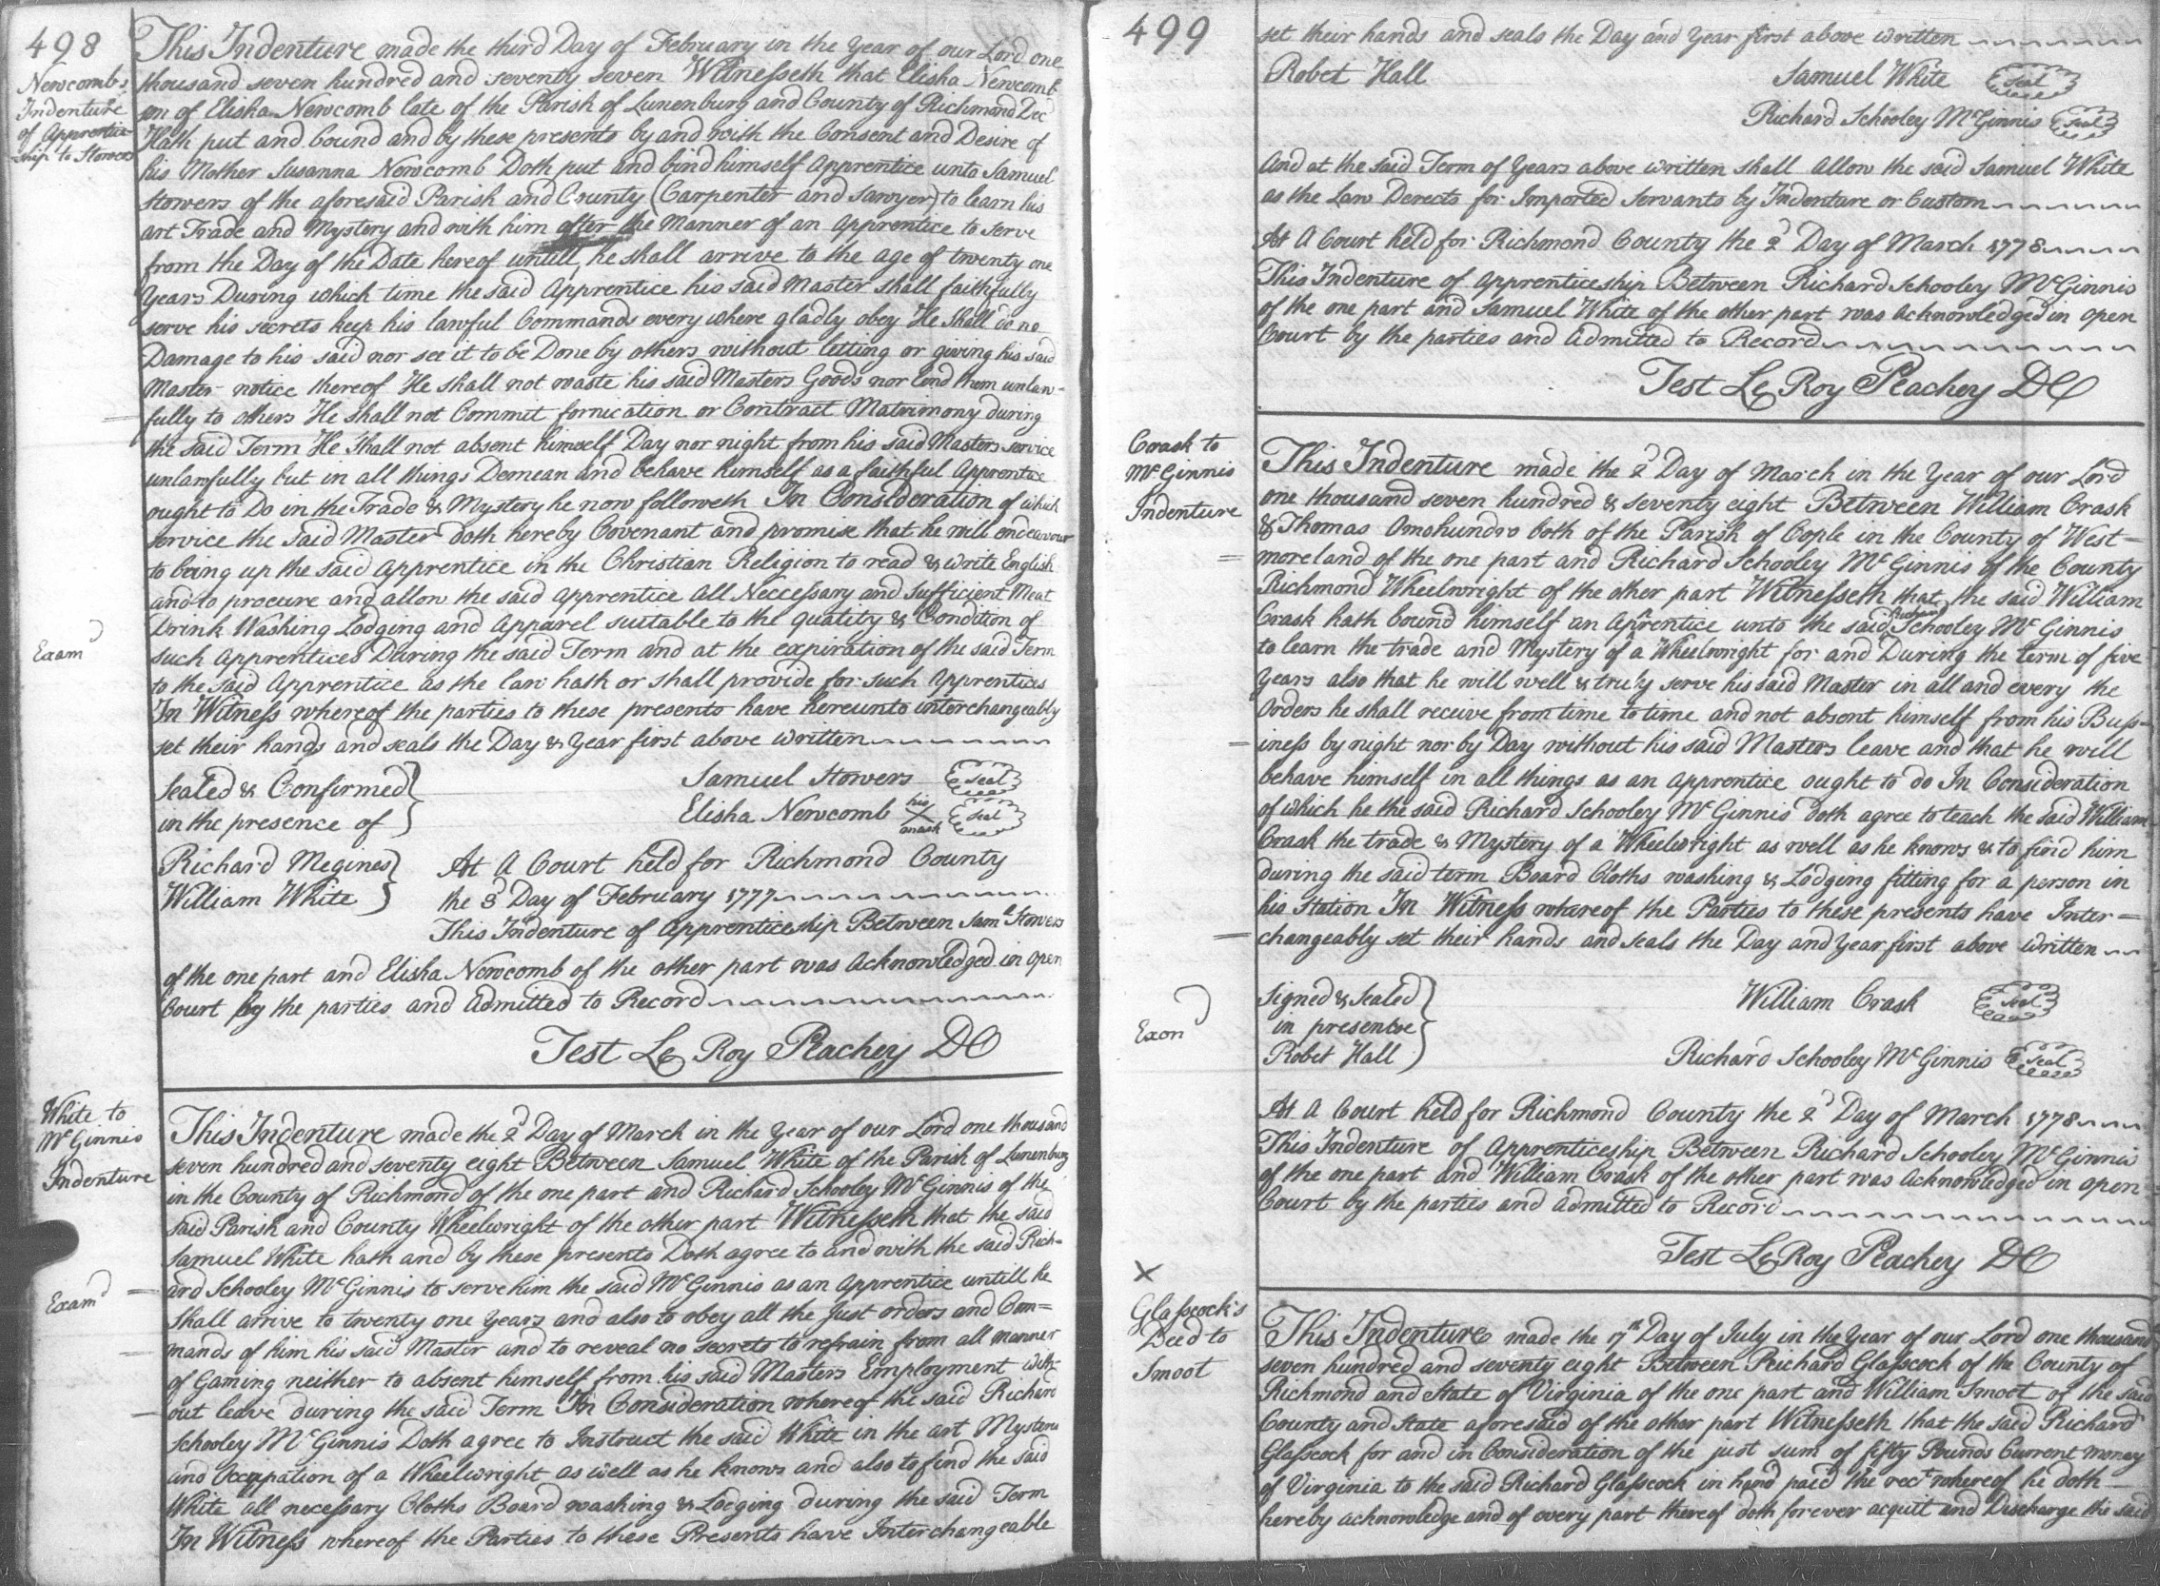 498
Newcombs
Indenture
of Apprentice
ship to Stowers
This Indenture made the third Day of February in the Year of our Lord one
thousand seven hundred and seventy seven Witnesseth that Elisha Newcomb
son of Elisha Newcomb late of the Parish of Lunenburg and County of Richmond Decd
Hath put and bound and by these presents by and with the Consent and Desire of
his Mother Susanna Newcomb Doth put and bind himself Apprentice unto Samuel
Stowers of the aforesaid Parish and County (Carpenter and Sawyer) to learn his
art Trade and Mystery and with him after the Manner of an Apprentice to serve
from the Day of the Date hereof untill he shall arrive to the age of twenty one
Years During which time the said Apprentice his said Master shall faithfully
serve his secrets keep his lawful Commands every where gladly obey He Shall do no
Damage to his said nor see it to be Done by others without letting or giving his said
Master notice thereof He shall not waste his said Masters Goods nor lend them unlaw-
fully to others He shall not Commit fornication or Contract Matrimony during
the said Term He Shall not absent himself Day nor night from his said Masters service
unlawfully but in all things Demean and behave himself as a faithful Apprentice
ought to Do in the Trade & Mystery he now followeth In Consideration of which
service the said Master doth hereby Covenant and promise that he will endeavour
to bring up the said apprentice in the Christian Religion to read & write English
and to procure and allow the said apprentice all Neccessary and sufficient Meat
Drink Washing Lodging and Apparel suitable to the quality & Condition of
Examd
such Apprentices During the said Term and at the expiration of the said Term
to the said Apprentice as the law hath or shall provide for such Apprentices
In Witness whereof the parties to these presents have hereunto interchangeably
set their hands and seals the Day & Year first above written
Sealed & Confirmed
in the presence of
Samuel Stowers seal
Elisha Newcomb his X mark seal
Richard Megines
William White
At A Court held for Richmond County
the 3d Day of February 1777
This Indenture of Apprenticeship Between Saml Stowers
of the one part and Elisha Newcomb of the other part was Acknowledged in open
Court by the parties and Admitted to Record
Test Le Roy Peachey DC
White to
McGinnis
Indenture
This Indenture made the 2d Day of March in the Year of our Lord one thousand
seven hundred and seventy eight Between Samuel White of the Parish of Lunenburg
in the County of Richmond of the one part and Richard Schooley McGinnis of the
said Parish and County Wheelwright of the other part Witnesseth that the said
Samuel White hath and by these presents Doth agree to and with the said Rich-
Examd
ard Schooley McGinnis to serve him the said McGinnis as an apprentice untill he
shall arrive to twenty one Years and also to obey all the Just orders and Com=
mands of him his said Master and to reveal no secrets to refrain from all manner
of Gaming neither to absent himself from his said Masters Employment with-
out leave during the said Term In Consideration whereof the said Richard
Schooley McGinnis Doth agree to Instruct the said White in the art Mystery
and Occupation of a Wheelwright as well as he knows and also to find the said
White all necessary Cloths Board washing & Lodging during the said Term
In Witness whereof the Parties to these Presents have Interchangeable
499
set their hands and seals the Day and Year first above written
Robet Hall
Samuel White seal
Richard Schooley McGinnis seal
And at the said Term of Years above written shall allow the said Samuel White
as the Law Derects for Imported Servants by Indenture or Custom
At A Court held for Richmond County the 2d Day of March 1778
This Indenture of apprenticeship Between Richard Schooley McGinnis
of the one part and Samuel White of the other part was Acknowledged in open
Court by the parties and Admitted to Record
Test Le Roy Peachey DC
Crask to
McGinnis
Indenture
This Indenture made the 2d Day of March in the Year of our Lord
one thousand seven hundred & seventy eight Between William Crask
& Thomas Omohundro both of the Parish of Cople in the County of West=
moreland of the one part and Richard Schooley McGinnis of the County
Richmond Wheelwright of the other part Witnesseth that the said William
Crask hath bound himself an Aprentice unto the said Richard Schooley McGinnis
to learn the trade and Mystery of a Wheelwright for and During the term of five
Years also that he will well & truly serve his said Master in all and every the
Orders he shall receive from time to time and not absent himself from his Buss=
iness by night nor by Day without his said Masters leave and that he will
behave himself in all things as an apprentice ought to do In Consideration
of which he the said Richard Schooley McGinnis doth agree to teach the said William
Crask the trade & Mystery of a Wheelwright as well as he knows & to find him
during the said term Board Cloths washing & Lodging fitting for a person in
his Station In Witness whereof the Parties to these presents have Inter=
changeably set their hands and seals the Day and Year first above written
Signed & Sealed
in presentce
Robet Hall
Exond
William Crask Seal
Richard Schooley McGinnis Seal
At A Court held for Richmond County the 2d Day of March 1778
This Indenture of Apprenticeship Between Richard Schooley McGinnis
of the one part and William Crask of the other part was Acknowledged in open
Court by the parties and admitted to Record
Test Le Roy Peachey DC
X
Glasscock's
Deed to
Smoot
This Indenture made the 17th Day of July in the Year of our Lord one thousand
seven hundred and seventy eight Between Richard Glasscock of the County of
Richmond and State of Virginia of the one part and William Smoot of the said
County and State aforesaid of the other part Witnesseth that the said Richard
Glasscock for and in Consideration of the just sum of fifty Pounds Current money
of Virginia to the said Richard Glasscock in hand paid the rect whereof he doth
hereby acknowledge and of every part thereof doth forever acquit and Discharge the said